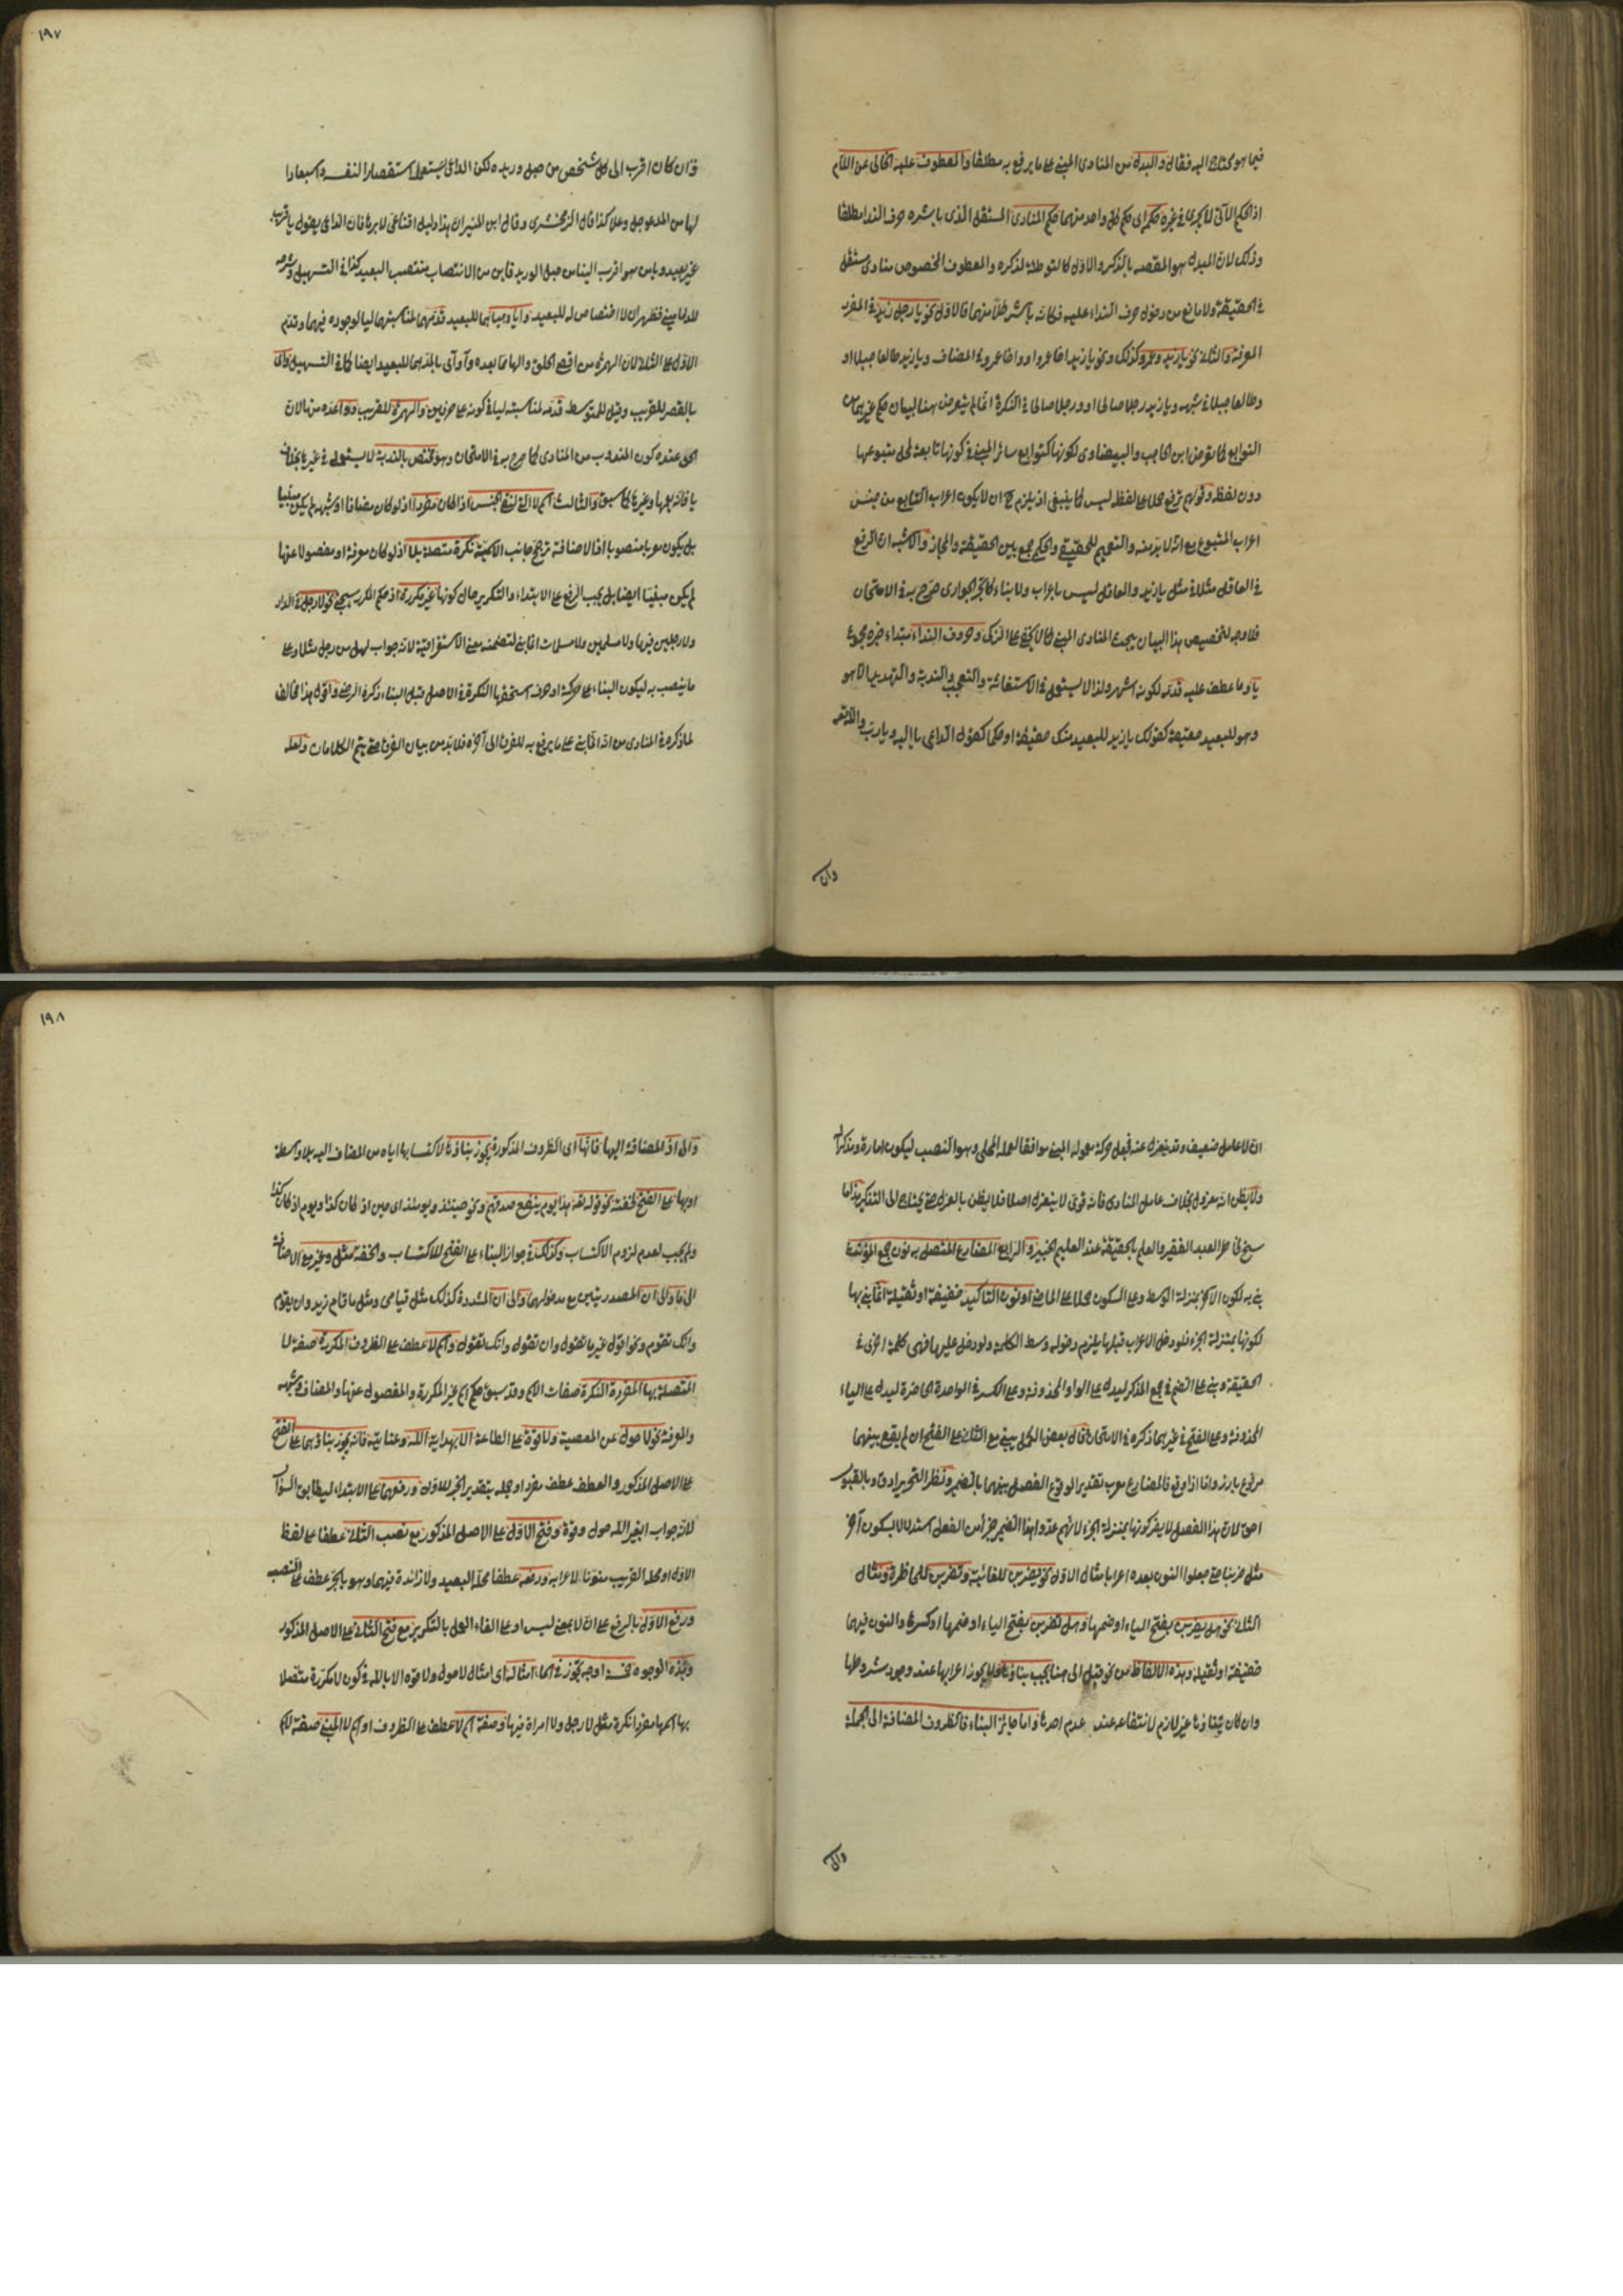 فيما هو محتاج اليه فقال والبدل من المنادى المبنى على ما يرفع به مطلقا والمعطوف عليه الخالى عن اللام
اذ الحكم الآتى لا يجرى فى غيره حكم اى حكم كل واحد منهما حكم المنادى المستقل الذى باشره حرف النداء مطلقا
وذلك لان المبدل هو المقصد بالذكر والاول كالتوطئة لذكره والمعطوف المخصوص منادى مستقل
فى الحقيقة ولا مانع من دخول حرف النداء عليه فكانه باشر كلا منهما فالاول نحو يا رجل زيد فى المفرد
المعرفة والثانى نحو يا زيد وعمرو وكذلك ونحو يا زيد اخا عمرو او واخا عمرو فى المضاف ويا زيد طالعا جبلا او
وطالعا جبلا فى شبهه ويا زيد رجلا صالحا او ورجلا صالحا فى النكرة انما لم يتعرض هنا لبيان حكم غيرهما من
التوابع كما تعرض ابن الحاجب والبيضاوى لكونها كتوابع سائر المبنى فى كونها تابعة لمحل متبوعها
دون لفظه وقولهم ترفع حملا على لفظه ليس كما ينبغى اذ يلزم ح ان لا يكون اعراب التابع من جنس
اعراب المتبوع مع انه لا بد منه والتعميم للحقيقى والحكمى جمع بين الحقيقة والمجاز والاشبه ان الرفع
فى العاقل مثلا فى مثل يا زيد والعاقل ليس باعراب ولا بناء كالجر الجوارى صرح به فى الامتحان
فلا وجه لتخصيص هذا البيان ببحث المنادى المبنى كما لا يخفى على الذكى وحروف النداء مبتداء خبره مجموع
يا وما عطف عليه قدمه لكونه اشهر ولذا لا يستعمل فى الاستغاثة والتعجب والندبة والتهديد الا هو
وهو للبعيد حقيقة كقولك يا زيد للبعيد منك حقيقة او حكما كقول الداعى يا الله ويا رب والله تعالى
وان
١٩٧
وان كان اقرب الى كل شخص من حبل وريده لكن الداعى يستعمله استقصارا لنفسه واستبعادا
لها من المدعو جل وعلا كذا قال الزمخشرى وقال ابن المنير ان هذا دليل اقناعى لا برهانى فان الداعى يقول يا قريب
غير بعيد ويا من هو اقرب الينا من حبل الوريد فاين من الانتصاب منتصب البعيد كذا فى التسهيل وشرحه
للدمامينى فظهر ان لا اختصاص له للبعيد وايا وهيا هما للبعيد قدمهما لمناسبتهما ليا لوجوده فيهما وقدم
الاول على الثانى لان الهمزة من اقصى الحلق والهاء مما بعده وآ وآى بالمد هما للبعيد ايضا كما فى التسهيل واى
بالقصر للقريب وقيل للمتوسط قدمه لمناسبته ليا فى كونه على حرفين والهمزة للقريب ووا عده منها لان
الحق عنده كون المندوب من المنادى كما صرح به فى الامتحان وهو مختص بالندبة لا يستعمل فى غيرها بخلاف
يا فانه يعمها وغيرها كما سبق والثالث اسم لا التى لنفى الجنس اذا كان مفردا اذ لو كان مضافا او شبهه لم يكن مبنيا
بل يكون معربا منصوبا اذ الاضافة ترجح جانب الاسمية نكرة متصلة بلا اذ لو كان معرفة او مفصولا عنها
لم يكن مبنيا ايضا بل يجب الرفع على الابتداء والتكرير حال كونها غير مكررة اذ حكم المكرر سيجئ نحو لا رجل فى الدار
ولا رجلين فيها ولا مسلمين ولا مسلمات انما بنى لتضمنه معنى الاستغراقية لانه جواب لهل من رجل مثلا وعلى
ما ينصب به ليكون البناء على حركة او حرف استحقها النكرة فى الاصل قبل البناء ذكره الرضى واقول هذا مخالف
لما ذكره فى المنادى من انه انما بنى على ما يرفع به للفرق الى آخره فلا بد من بيان الفرق حتى يتم الكلامان ولعله
ان لا عامل ضعيف وقد يعزل عنه فجعل حركة معموله المبنى موافقا لعمله المحلى وهو النصب ليكون امارة ومذكرا له
ولا يظن انه معزول بخلاف عامل المنادى فانه قوى لا ينعزل اصلا فلا يظن بالعزل حتى يحتاج الى التذكير هذا ما
سنح لى انا العبد الفقير والعلم بالحقيقة عند العليم الخبير والرابع المضارع المتصل به نون جمع المؤنث
بنى به لكون الآخر بمنزلة الوسط وعلى السكون حملا على الماضى او نون التأكيد خفيفة او ثقيلة انما بنى بها
لكونها بمنزلة الجزء فلو دخل الاعراب قبلها يلزم دخوله وسط الكلمة ولو دخل عليها فهى كلمة اخرى فى
الحقيقة وبنى على الضم فى جمع المذكر ليدل على الواو المحذوفة وعلى الكسر فى الواحدة الحاضرة ليدل على الياء
المحذوفة وعلى الفتح فى غيرهما ذكره فى الامتحان قال بعض الكمل يبنى مع الثانى على الفتح ان لم يقع بينهما
مرفوع بارز واما اذا وقع فالمضارع معرب تقديرا لوقوع الفصل بينهما بالضمير ونظر التحرير ادق وبالقبول
احق لان هذا الفصل لا يضر كونها بمنزلة الجزء لانهم عدوا هذا الضمير جزأ من الفعل استدلالا بسكون آخر
مثل ضربنا حتى جعلوا النون بعده اعرابا مثال الاول نحو يضربن للغائبة وتضربن للحاضرة ومثال
الثانى نحو هل يضربن بفتح الياء او ضمها وهل تضربن بفتح الباء او ضمها او كسرها والنون فيهما
خفيفة او ثقيلة وهذه الالفاظ من نحو قبل الى هنا يجب بناؤها فلا يجوز اعرابها عند وجود شروطها
وان كان بناؤها غير لازم لانتفائه عند عدم احدها واما جائز البناء فالظروف المضافة الى الجملة
والى
١٩٨
والى اذ المضافة اليها فانها اى الظروف المذكورة يجوز بناؤها لاكتسابها اياه من المضاف اليه بلا واسطة
او بها على الفتح لخفته نحو قوله تعالى هذا يوم ينفع صدقهم ونحو حينئذ ويومئذ اى حين اذ كان كذا ويوم اذ كان كذا
ولم يجب لعدم لزوم الاكتساب وكذلك فى جواز البناء على الفتح للاكتساب والخفة مثل وغير مع الاضافة
الى ما والى ان المصدريتين مع مدخولهما والى ان المشددة كذلك مثل قيامى ومثل ما قام زيد وان يقوم
وانك تقوم ونحو اقول غير ما تقول وان تقول وانك تقول واسم لا عطف على الظروف المكررة صفة لا
المتصلة بها المفردة النكرة صفات الاسم وقد سبق حكم اسم غير المكررة والمفصول عنها والمضاف وشبهه
والمعرفة نحو لا حول عن المعصية ولا قوة على الطاعة الا بهداية الله وعنايته فانه يجوز بناؤهما على الفتح
على الاصل المذكور والعطف عطف مفرد او جملة بتقدير الخبر للاول ورفعهما على الابتداء ليطابق السؤال
لانه جواب ابغير الله حول وقوة وفتح الاول على الاصل المذكور مع نصب الثانى عطفا على لفظ
الاول او محله القريب منونا لاعرابه ورفعه عطفا على محله البعيد ولا زائدة فيهما وهو بالجر عطف على النصب
ورفع الاول بالرفع على ان لا بمعنى ليس او على الغاء العمل بالتكرير مع فتح الثانى على الاصل المذكور
وهذه الوجوه خمسة اوجه يجوز فى امثاله اى امثال لا حول ولا قوة الا بالله فى كون لا مكررة متصلا
بها اسمها مفردا نكرة مثل لا رجل ولا امرأة فيها وصفة اسم لا عطف على الظروف او اسم لا المبنى صفة لاسم